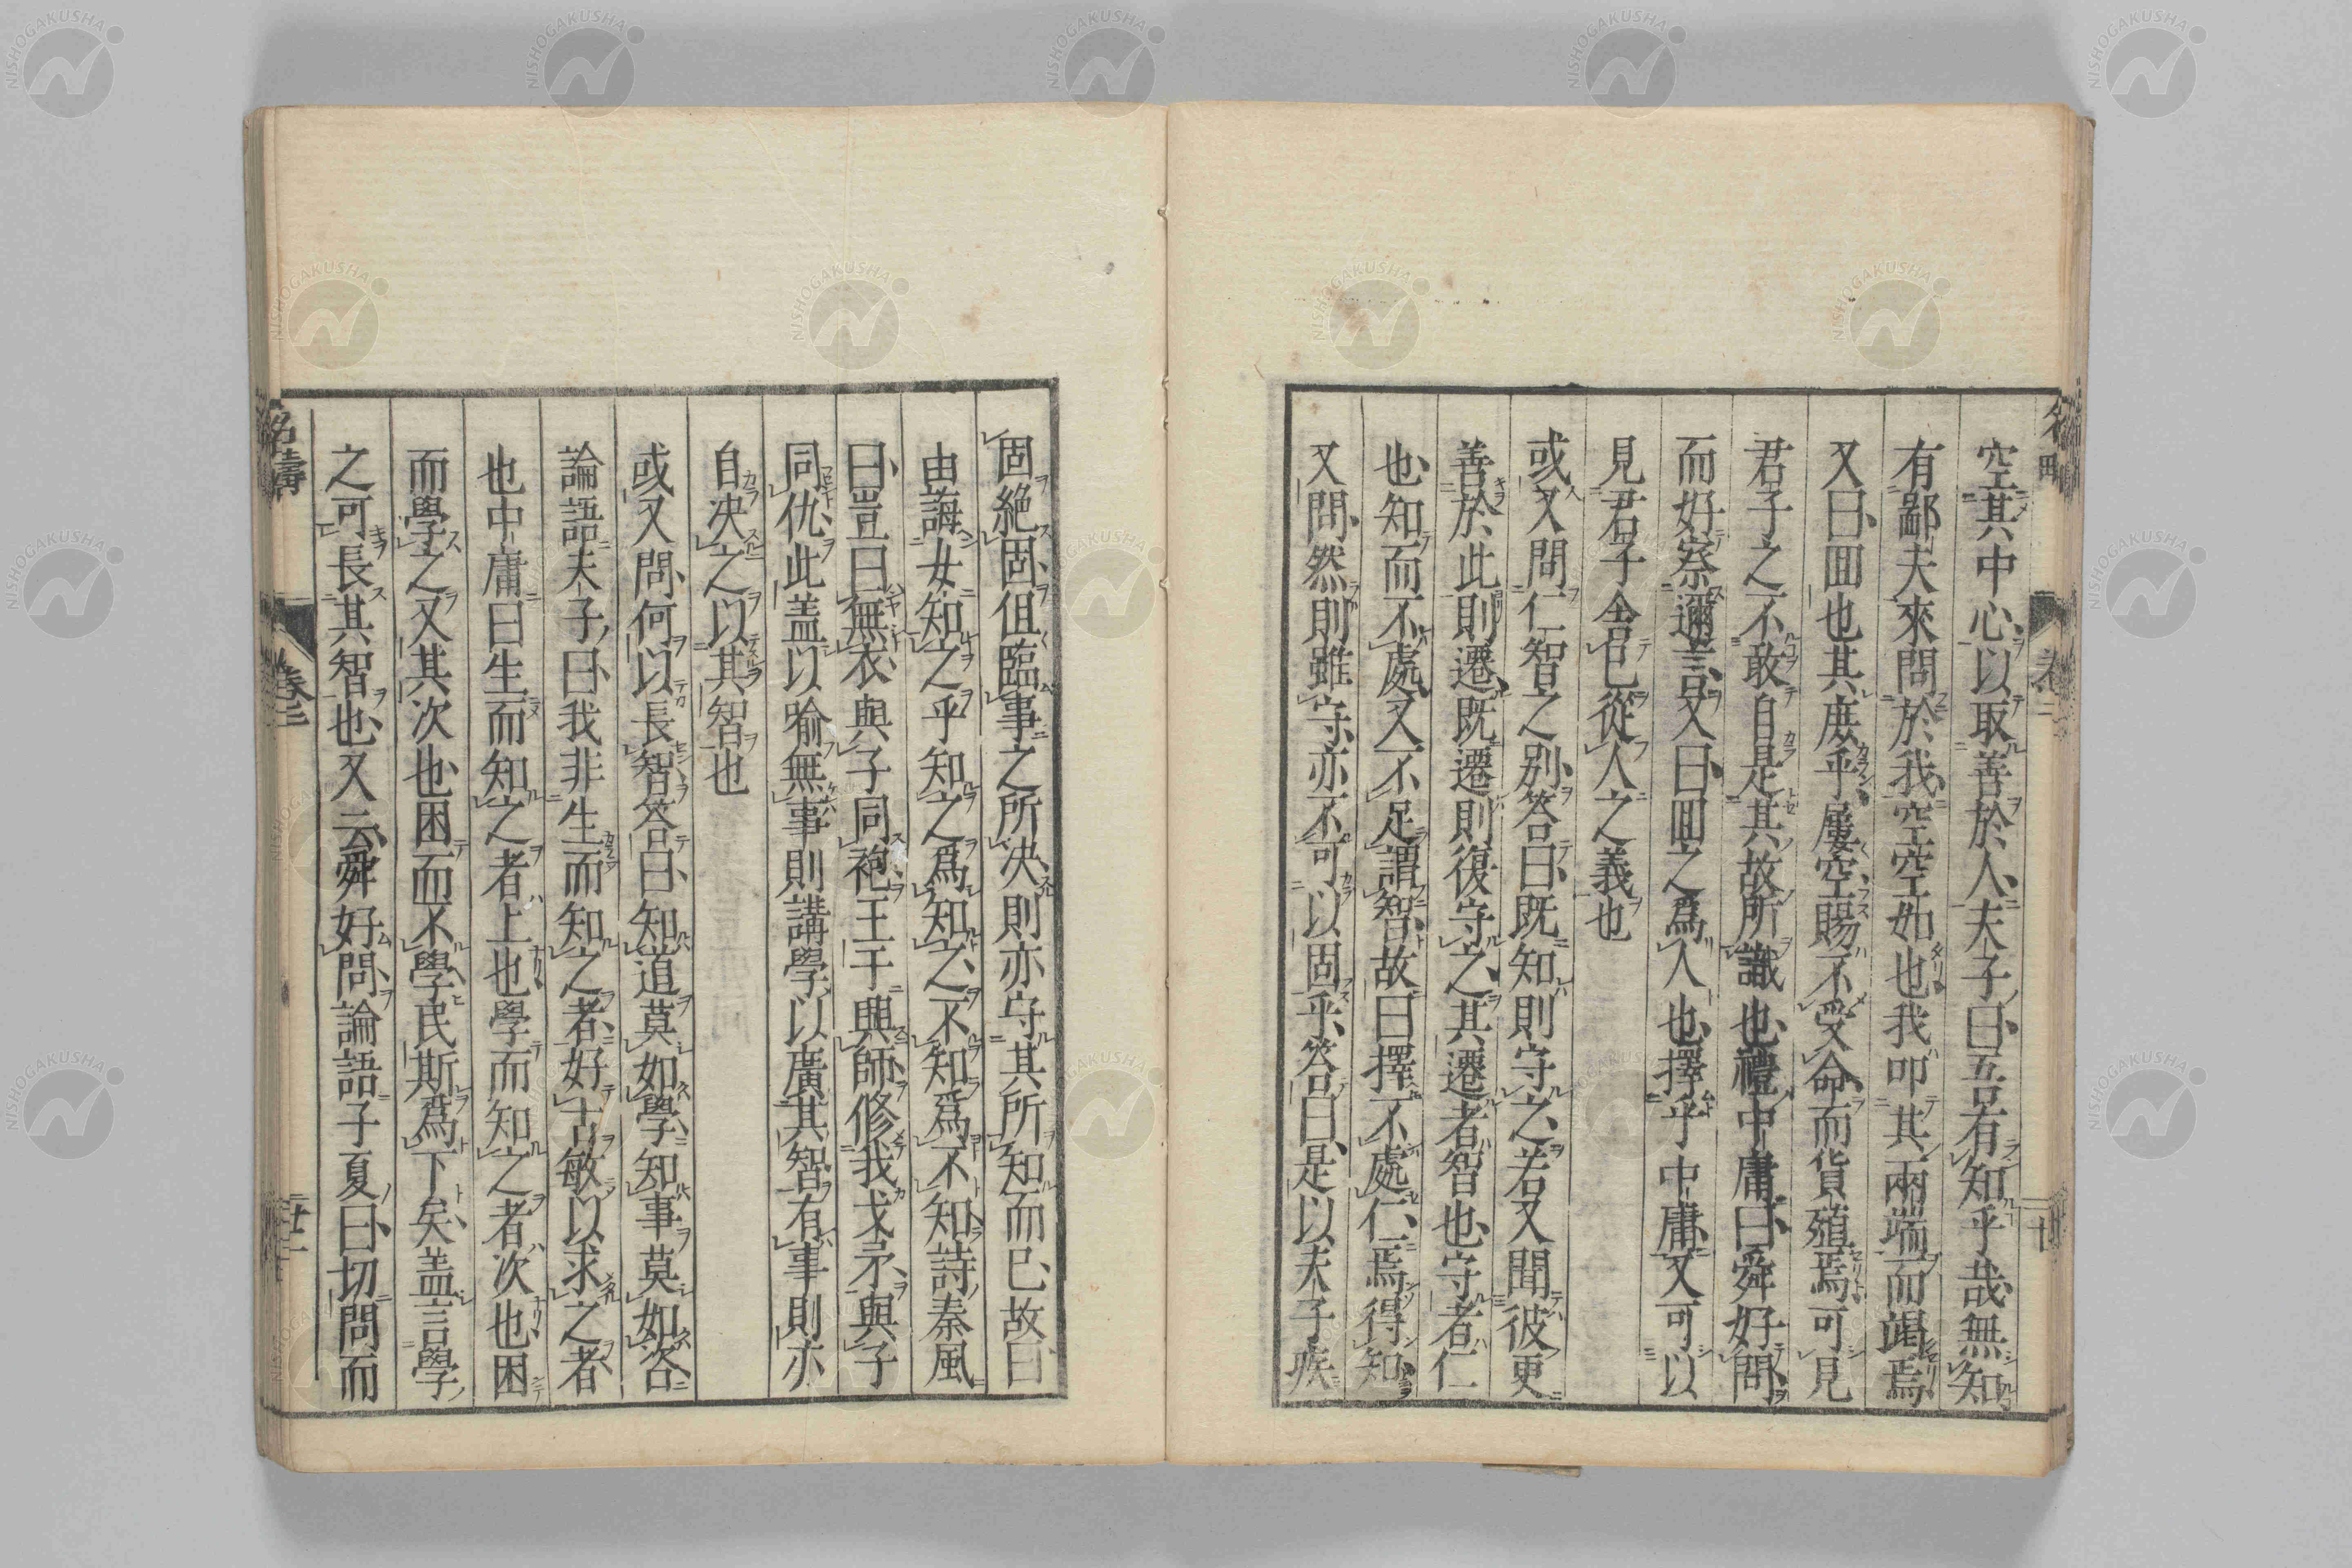 空其中心以取善於人夫子曰吾有知乎哉無知
有鄙夫來問於我空空如也我叩其兩端而竭焉
又曰回也其庶乎屢空賜不受命而貨殖焉可見
君子之不敢自是其故所識也禮中庸曰舜好問
而好察邇言又曰回之爲人也擇乎中庸又可以
見君子舍已從人之義也
或又問仁智之別答曰既知則守之若又聞彼更
善於此則遷既遷則復守之其遷者智也守者仁
也知而不處又不足謂智故曰擇不處仁焉得知
又問然則雖守亦不可以固乎答曰是以夫子疾
固絶固但臨事之所決則亦守其所知而已故曰
由誨女知之乎知之爲知之不知爲不知詩秦風
曰豈曰無衣與子同袍王于興師修我戈矛與子
同仇此盖以喩無事則講學以廣其智有事則亦
自决之以其智也
或又問何以長智答曰知道莫如學知事莫如咨
論語夫子曰我非生而知之者好古敏以求之者
也中庸曰生而知之者上也學而知之者次也困
而學之又其次也困而不學民斯爲下矣盖言學
之可長其智也又云舜好問論語子夏曰切問而
名疇
卷二
廿一
NISHOGAKUSHA